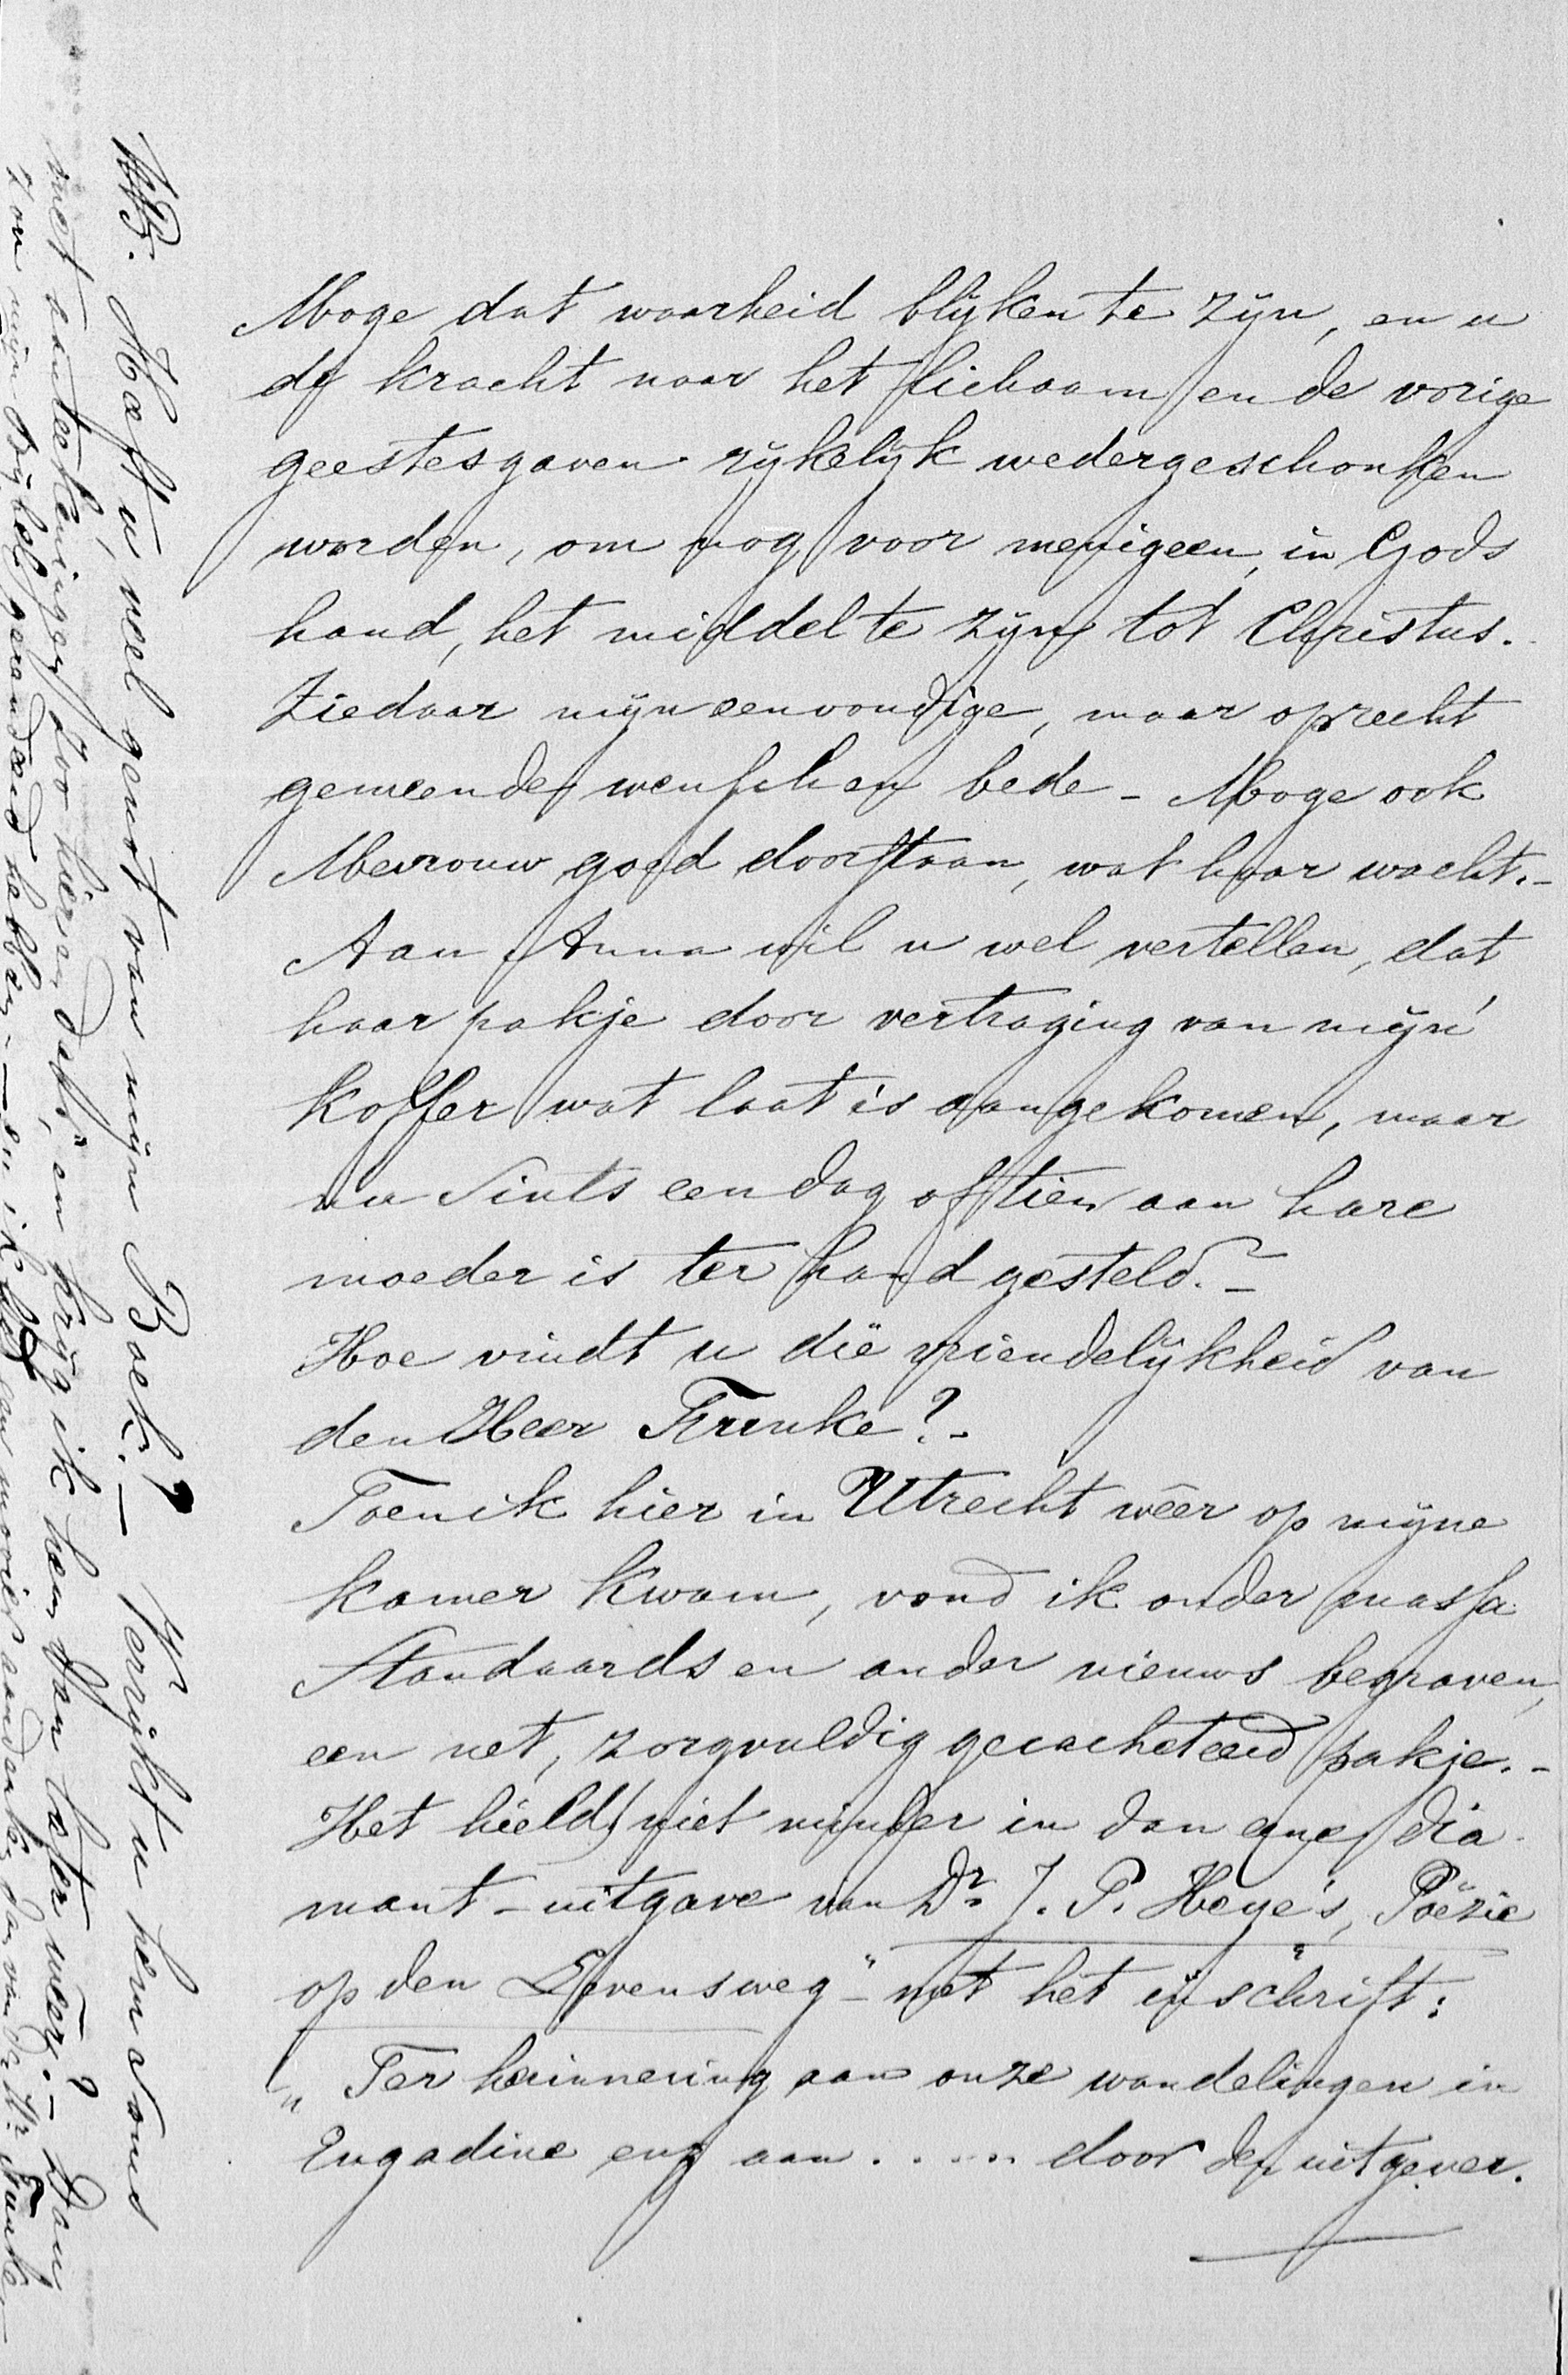 Moge dat waarheid blijken te zijn, en u
de kracht naar het lichaam en de vorige
geestesgaven rijkelijk wedergeschonken
worden, om nog voor menigeen, in Gods
hand, het middel te zijn tot Christus.
Ziedaar mijn eenvoudige, maar oprecht
gemeende wensch en bede – Moge ook
Mevrouw goed doorstaan, wat haar wacht. –
Aan Anna wil u wel vertellen, dat
haar pakje door vertraging van mijn
koffer wat laat is aangekomen, maar
nu sints een dag of tien aan hare
moeder is ter hand gesteld. –
Hoe vindt u die vriendelijkheid van
den Heer Funke? –
Toen ik hier in Utrecht wêer op mijne
kamer kwam, vond ik onder massa
Standaards en ander nieuws begraven,
een net, zorgvuldig gecacheteerd pakje. –
Het hield niet minder in dan eene dia-
mant-uitgave van Dr. J. P. Heye's, Poëzie
op den Levensweg" – met het inschrift:
„Ter herinnering aan onze wandelingen in
Engadine enz aan ..... door den uitgever.
NB. Heeft u veel genot van mijn Boek? – Verrijkt u hem soms
met aanteekeningen zoo hier en daar, en krijg ik hem dan later weer? – Dan
zou mijn Bijbel gerandeerd hebben – en ik een mooier aandenken dan van Dr. Hr. Funke